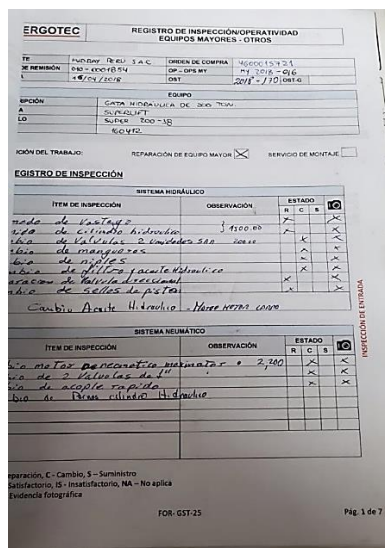 ERGOTEC
REGISTRO DE INSPECCIÓN/OPERATIVIDAD
EQUIPOS MAYORES - OTROS
TE PERU S.A.C ORDEN DE COMPRA 4600015421
DE REMISIÓN 010-0001854 OP - OPS MY MY 2018-016
18/04/2018 OST 2018-170 OST-G
EQUIPO
RIPCIÓN GATA HIDRAULICA DE 200 TON.
A SUPERLIFT
LO SUPER 200-38
160412
CIÓN DEL TRABAJO: REPARACIÓN DE EQUIPO MAYOR X SERVICIO DE MONTAJE
EGISTRO DE INSPECCIÓN
SISTEMA HIDRÁULICO
ÍTEM DE INSPECCIÓN OBSERVACIÓN ESTADO
R C S
de Vastago X X
de cilindro hidraulico } 1500.00 X X
bio de Valvulas 2 Unidades X X
bio de mangueras X X
bio de niples X X
bio de filtro y aceite Hidraulico X X
aracion de Valvula direccional X X
bio de selles de piston X X
Cambio Aceite Hidraulico -
SISTEMA NEUMÁTICO
ÍTEM DE INSPECCIÓN OBSERVACIÓN ESTADO
R C S
motor neomatico 2,200 X X
de 2 Valvulas de 1" X X
de acople rapido X X
bio de cilindro Hidraulico
INSPECCIÓN DE ENTRADA
eparación, C - Cambio, S – Suministro
Satisfactorio, IS - Insatisfactorio, NA – No aplica
Evidencia fotográfica
FOR- GST-25 Pág. 1 de 7